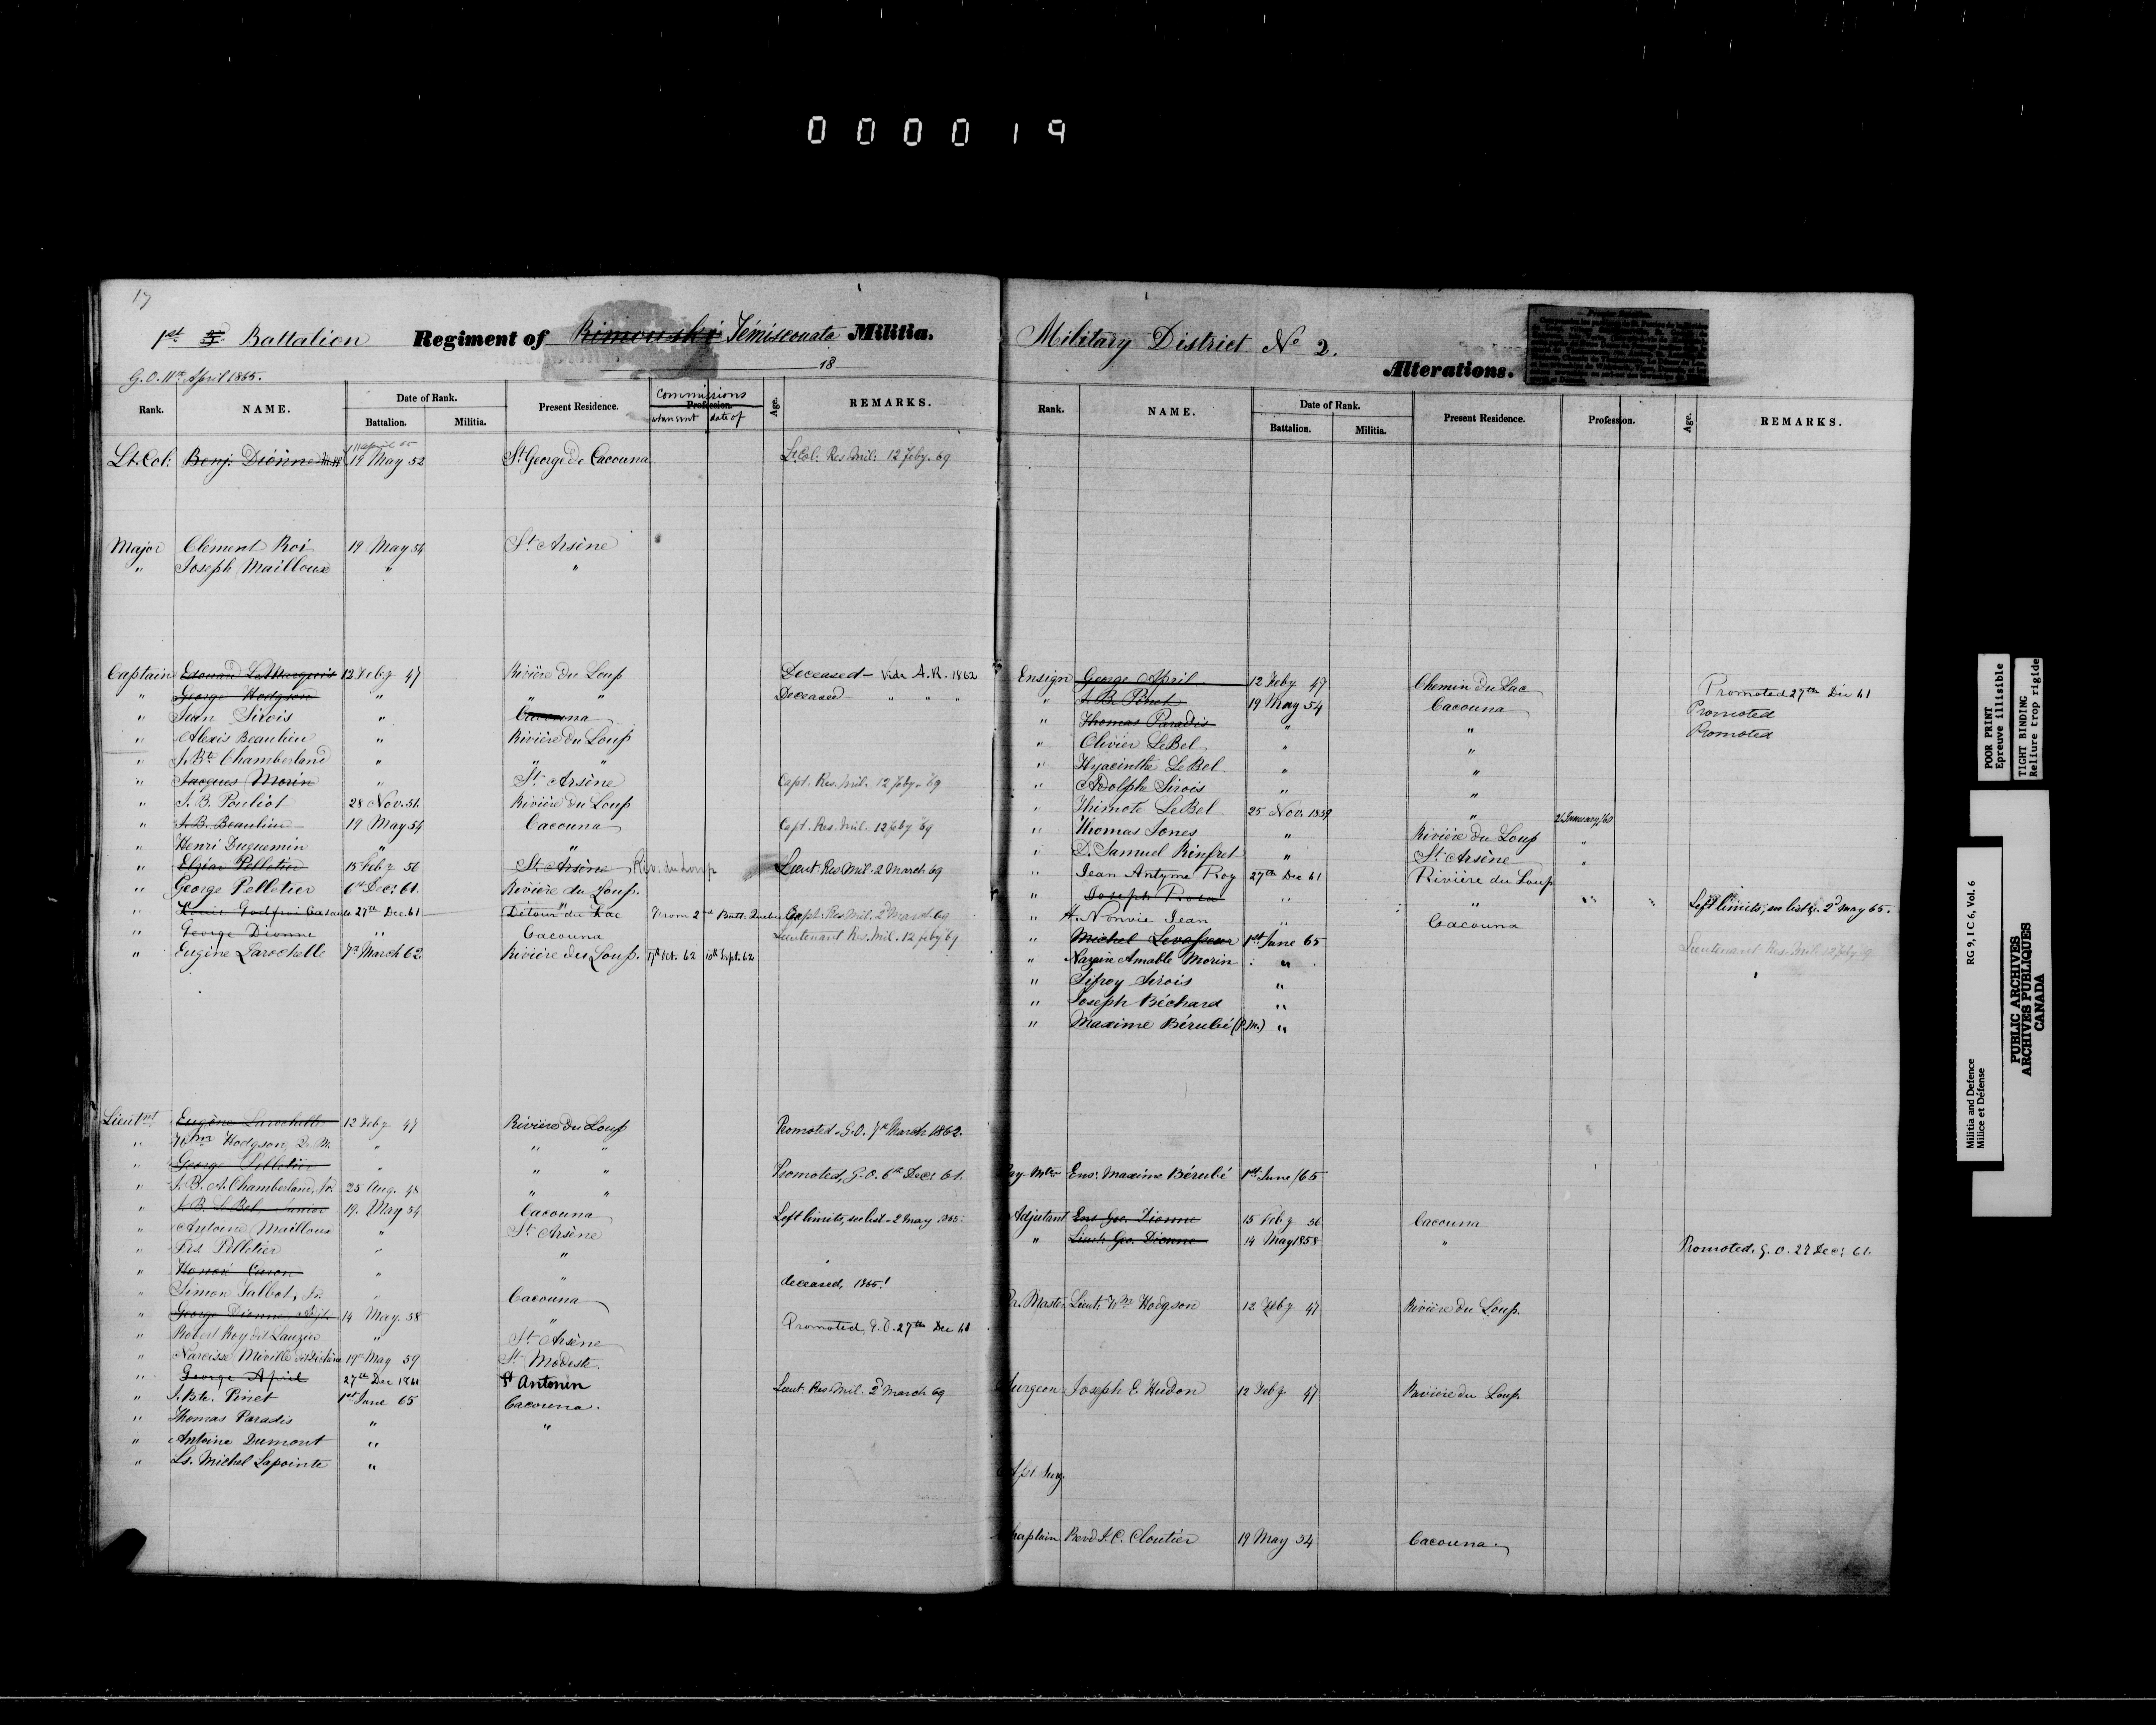 0 0 0 0 1 9
17
1st Battalion Regiment of Rimouski Témiscouata Militia.
18
G.O. 11th April 1865.
Rank. NAME. Date of Rank. Battalion. Militia. Present Residence. Commissions Profession. date of Age. REMARKS.
11 April 65
Lt. Col: Benj: Dionne 19 May 52 St. George de Cacouna Lt. Col: Res. Mil: 12 Feby. 69
Major Clément Roi 19 May 54 St. Arsène
" Joseph Mailloux " "
Captain Edouard LeMarquis 12 Feby 47 Rivière du Loup Deceased - Vide A.R. 1862
" George Hodgson " " " Deceased " " "
" Jean Sirois " Cacouna
" Alexis Beaulieu " Rivière du Loup
" J. Bte. Chamberland " " "
" Jacques Morin " St. Arsène Capt. Res. Mil. 12 Feby. 69
" J. B. Pouliot 28 Nov. 51. Rivière du Loup
" J. B. Beaulieu 19 May 54 Cacouna Capt. Res. Mil. 12 Feby 69
" Henri Duguemin "
" Elzéar Pelletier 15 Feby 56 St. Arsène Riv. du Loup Lieut. Res. Mil. 2 March 69
" George Pelletier 6th Decr. 61. Rivière du Loup.
" Louis Godfroi 27th Dec. 61 Détour du Lac From 2nd Batt. Capt. Res. Mil. 2d March 69
" George Dionne " Cacouna Lieutenant Res. Mil. 12 Feby 69
" Eugène Larochelle 7th March 62 Rivière du Loup. 17th Oct. 62 10th Sept. 62
Lieutnt Eugène Larochelle 12 Feby 47 Rivière du Loup Promoted G.O. 7th March 1862.
" Wm Hodgson, Q. M. " " "
" George Pelletier " " " Promoted, G.O. 6th Decr 61.
" J. B. A. Chamberland, Jr. 25 Aug. 48 " "
" J. B. LeBel Junior 19. May 54 Cacouna Left limits, see list - 2 May 1865.
" Antoine Mailloux " St. Arsène
" Frs Pelletier " "
" Honoré Caron " " deceased, 1865!
" Simon Talbot, Jr. " Cacouna
" George Dionne, Adjt. 14 May 58 " Promoted, G.O. 27th Dec 61
" Robert Roy dit Lauzier " St. Arsène
" Narcisse Miville dit 19th May 59 St. Modeste.
" George April 27th Dec 1861 St Antonin Lieut. Res. Mil. 2d March 69
" J. Bte. Pinet 1st June 65 Cacouna.
" Thomas Paradis " "
" Antoine Dumont "
" Ls. Michel Lapointe "
Military District No 2.
Alterations.
Rank. NAME. Date of Rank. Battalion. Militia. Present Residence. Profession. Age. REMARKS.
Ensign George April 12 Feby 47 Chemin du Lac Promoted 27th Dec 61
" J. B. Pinet 19 May 54 Cacouna Promoted
" Thomas Paradis " " Promoted
" Olivier LeBel " "
" Hyacinthe LeBel " "
" Adolph Sirois " "
" Thimoté LeBel 25 Nov. 1859 "
" Thomas Jones " Rivière du Loup
" D. Samuel Rinfret " St. Arsène
" Jean Antyme Roy 27th Dec 61 Rivière du Loup
" Joseph " " Left limits, see list G. 2d May 65.
" Jean " Cacouna
" Michel Levasseur 1st June 65 Lieutenant Res. Mil. 12 Feby 69
" Amable Morin "
" Sifroy Sirois "
" Joseph Béchard "
" Maxime Bérubé (P.M.) "
Pay-Mtr Ens: Maxime Bérubé 1st June /65
Adjutant Ens Geo. Dionne 15 Feby 56 Cacouna
" Lieut. Geo. Dionne 14 May 1858 " Promoted, G.O. 27 Decr 61.
Qr. Master Lieut. Wm Hodgson 12 Feby 47 Rivière du Loup.
Surgeon Joseph E. Hudon 12 Feby 47 Rivière du Loup
Asst. Surg.
Chaplain Revd J. C. Cloutier 19 May 54 Cacouna.
POOR PRINT
Epreuve illisible
TIGHT BINDING
Reliure trop rigide
Militia and Defence
Milice et Défense
RG 9, I C 6, Vol. 6
PUBLIC ARCHIVES
ARCHIVES PUBLIQUES
CANADA